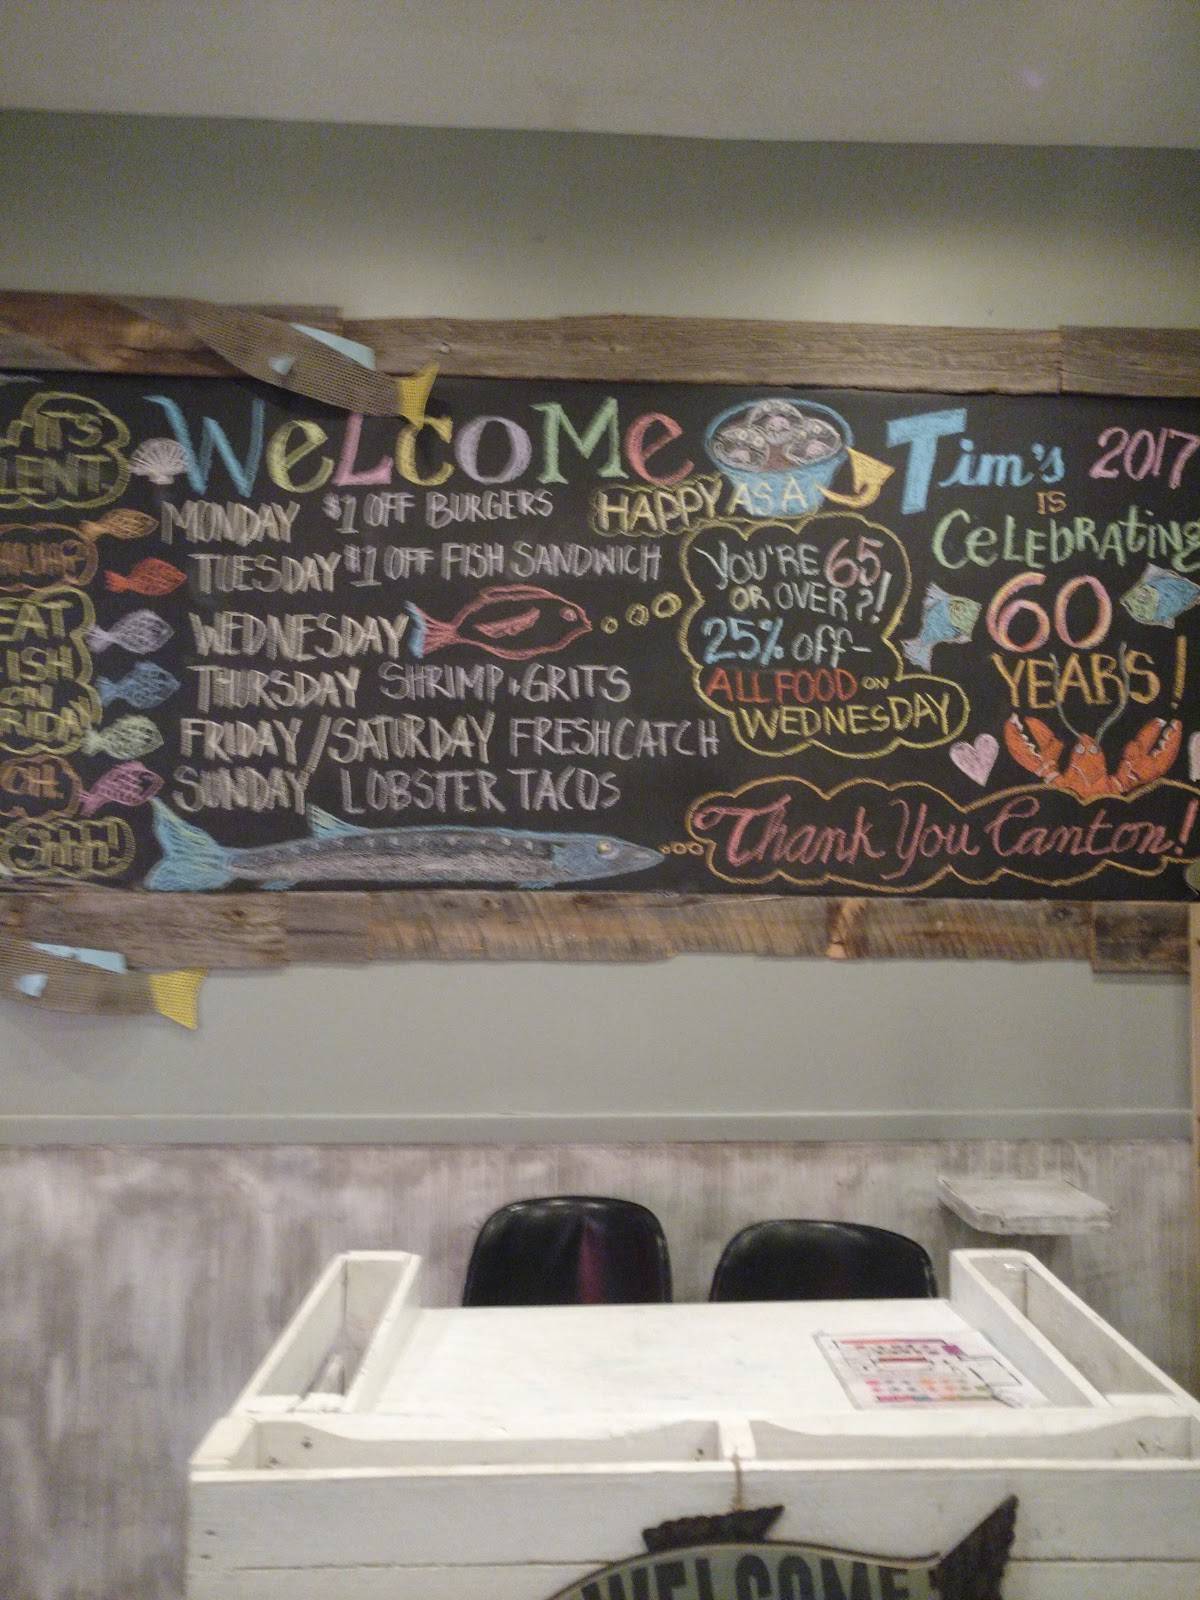 IT'S
LENT.
EAT
FISH
ON
FRIDAY
Shhh!
WeLcoMe
MONDAY $1 OFF BURGERS
TUESDAY $1 OFF FISH SANDWICH
WEDNESDAY
THURSDAY SHRIMP + GRITS
FRIDAY / SATURDAY FRESH CATCH
SUNDAY LOBSTER TACOS
HAPPY AS A
YOU'RE 65
OR OVER?!
25% off-
ALL FOOD ON
WEDNESDAY
Tim's 2017
IS
CeLEBRAtiNG
60
YEARS!
Thank You Canton!
WELCOME